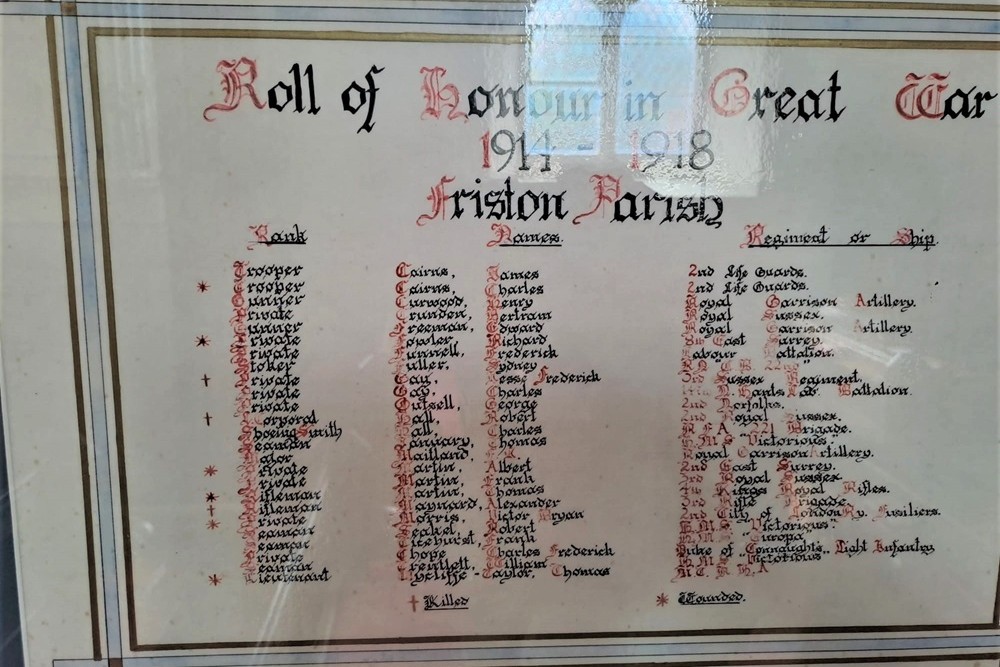 Roll of Honour in Great War
1914 - 1918
Friston Parish
Rank Names. Regiment or Ship.
Trooper Cairns, James 2nd Life Guards.
* Trooper Cairns, Charles 2nd Life Guards.
Gunner Curwood, Henry Royal Garrison Artillery.
Private Crunden, Bertram Royal Sussex.
Gunner Freeman, Edward Royal Garrison Artillery.
* Private Fowler, Richard 8th East Surrey.
Private Funnell, Frederick Labour Battalion.
Stoker Fuller, Sydney
† Private Gay, Jesse Frederick 3rd Sussex Regiment.
Private Gay, Charles Hants Lab. Battalion.
Private Gutsell, George 2nd Norfolks.
† Corporal Hall, Robert 2nd Royal Sussex.
Shoeing Smith Hall, Charles R.F.A. 221 Brigade.
Seaman January, Thomas H.M.S "Victorious"
Major Maitland, Royal Garrison Artillery.
* Private Martin, Albert 2nd East Surrey.
Private Martin, Frank 3rd Royal Sussex
* Rifleman Martin, Thomas Kings Royal Rifles.
† Rifleman Maynard, Alexander 3rd Rifle Brigade.
* Private Morris, Victor Bryan 2nd City of London Ry. Fusiliers.
Seaman Robert H.M.S "Victorious"
Seaman Frank H.M.S "Europa"
Private Shope, Charles Frederick Duke of "Connaughts" Light Infantry
Seaman William H.M.S Victorious
* Lieutenant Wycliffe-Taylor, Thomas
† Killed * Wounded.